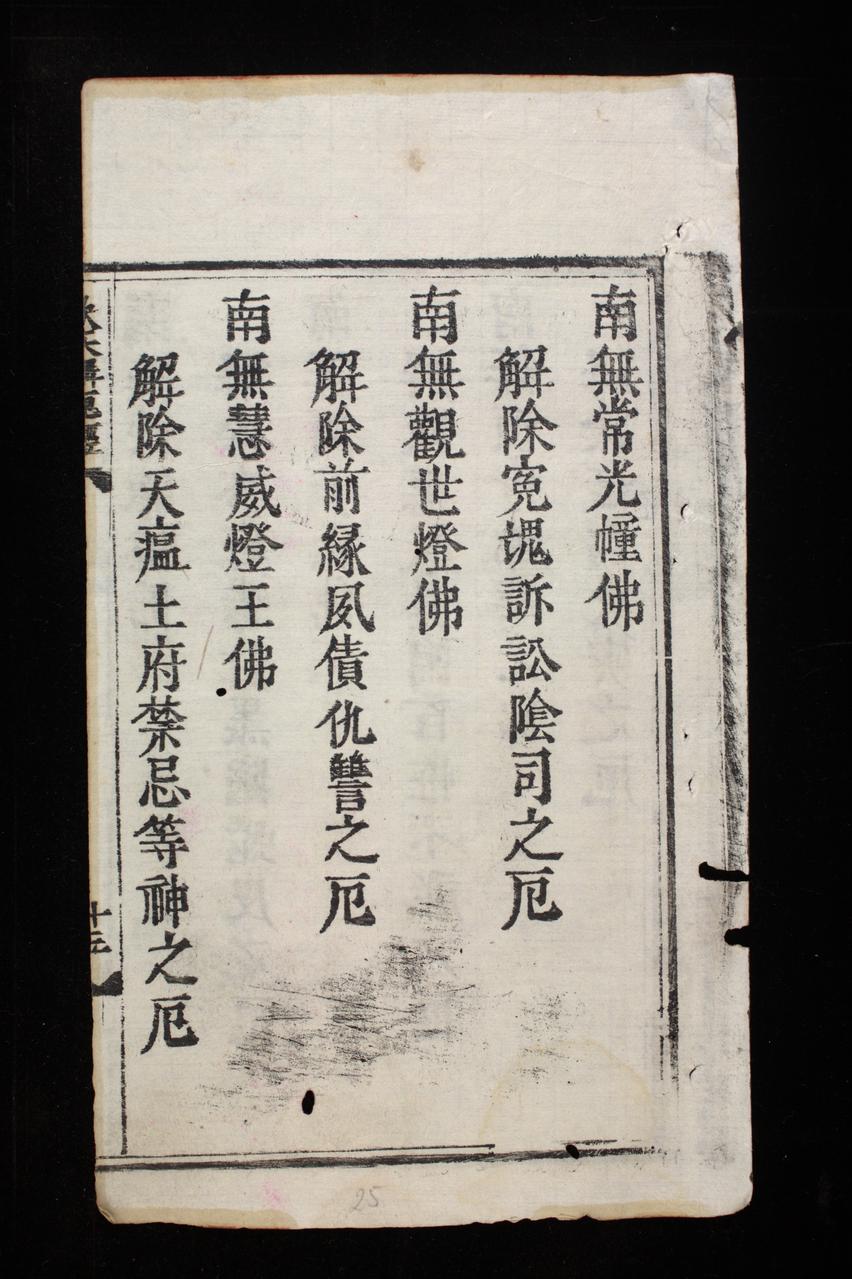 南無常光幢佛
解除寃愧訴訟陰司之厄
南無觀世燈佛
解除前緣夙債仇讐之厄
南無慧威燈王佛
解除天瘟土府禁忌等神之厄
25